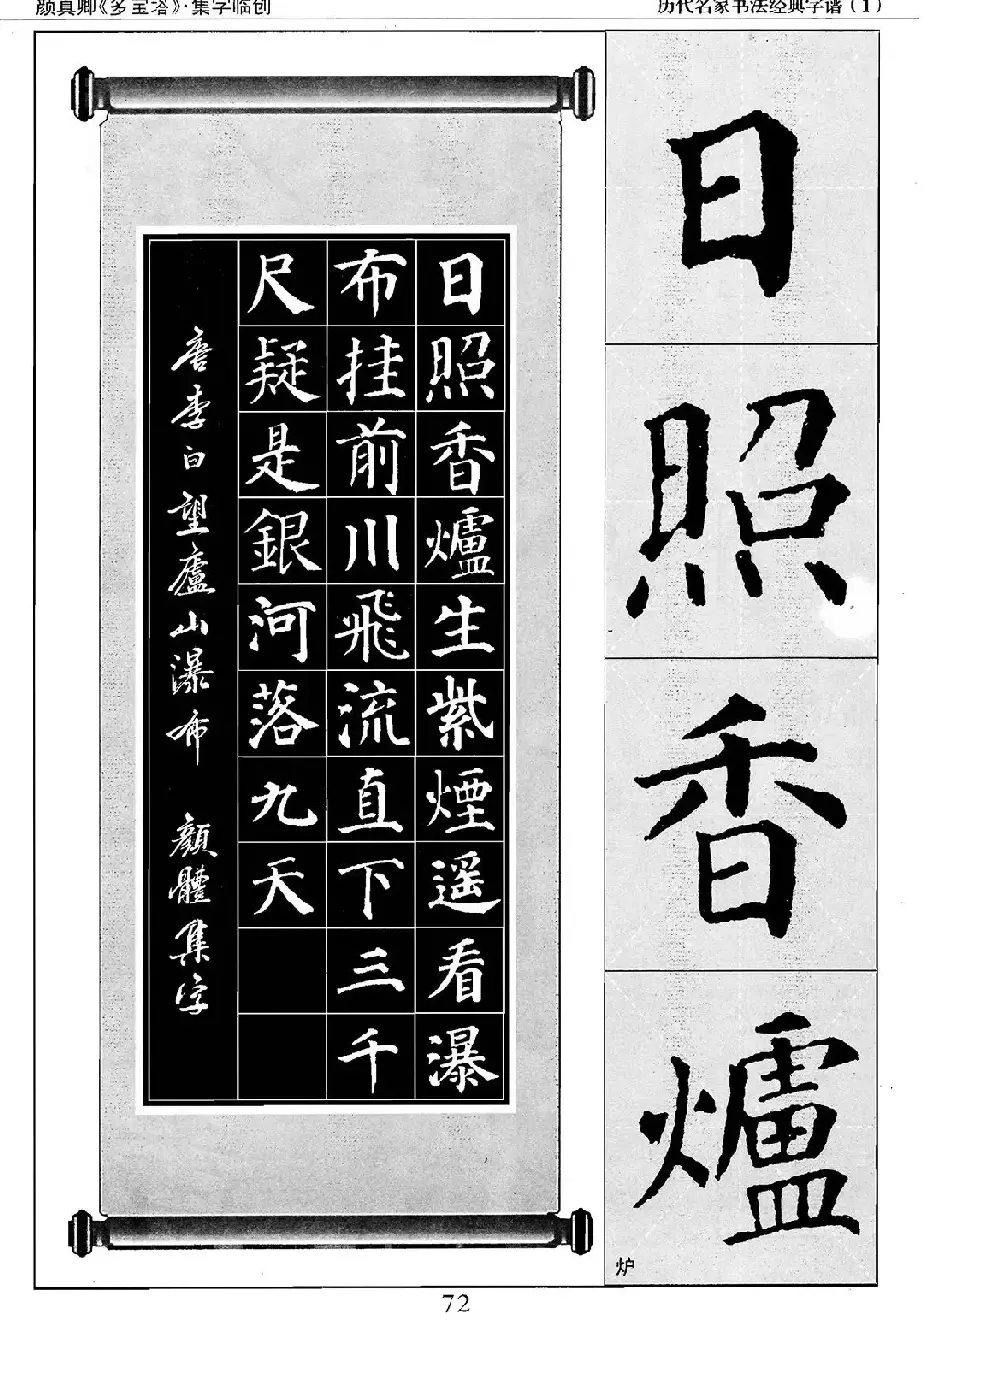 颜真卿《多宝塔》·集字临创
历代名家书法经典字谱（1）
日照香爐生紫煙遥看瀑
布挂前川飛流直下三千
尺疑是銀河落九天
唐李白望廬山瀑布 顏體集字
日
照
香
爐
炉
72